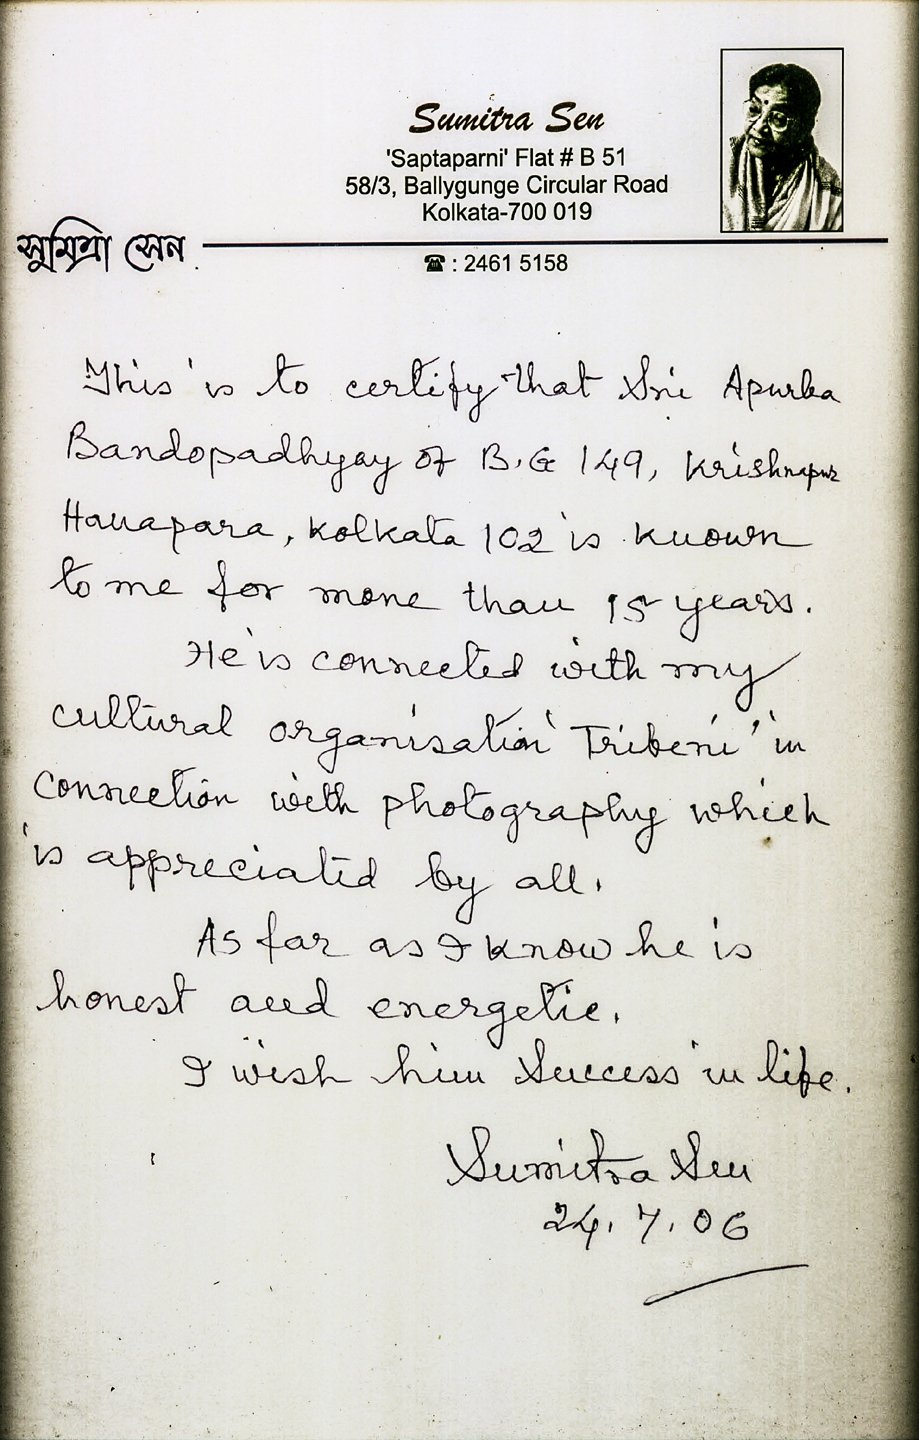 Sumitra Sen
'Saptaparni' Flat # B 51
58/3, Ballygunge Circular Road
Kolkata-700 019
সুমিত্রা সেন
☎ : 2461 5158
This is to certify that Sri Apurba
Bandopadhyay of B.G 149, Krishnapur
Hanapara, Kolkata 102 is known
to me for more than 15 years.
He is connected with my
cultural organisation 'Tribeni' in
connection with photography which
is appreciated by all.
As far as I know he is
honest and energetic.
I wish him Success in life.
Sumitra Sen
24.7.06